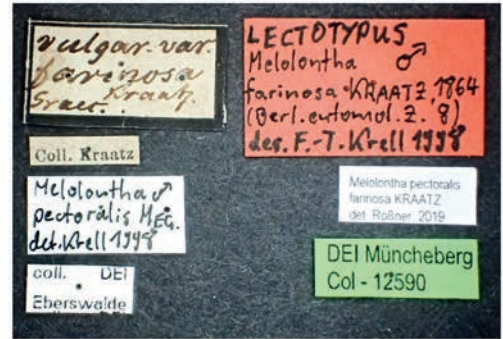 vulgar. var.
farinosa
Kraatz.
Graec.
Coll. Kraatz
Melolontha ♂
pectoralis MEG.
det. Krell 1998
coll. DEI
Eberswalde
LECTOTYPUS
Melolontha ♂
farinosa KRAATZ, 1864
(Berl. entomol. Z. 8)
des. F.-T. Krell 1998
Melolontha pectoralis
farinosa KRAATZ
det. Roßner, 2019
DEI Müncheberg
Col - 12590